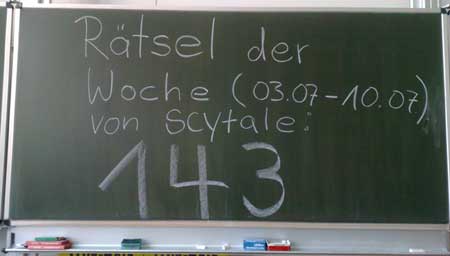 Rätsel der
Woche (03.07-10.07)
von scytale:
143